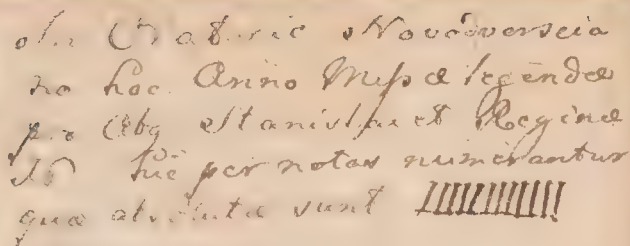 Oratorio Novodverscia
no hoc Anno Missæ legendæ
pro Stanislai et Regina
No hic per notas numerantur
quæ absolutæ sunt IIIIIIIIIII